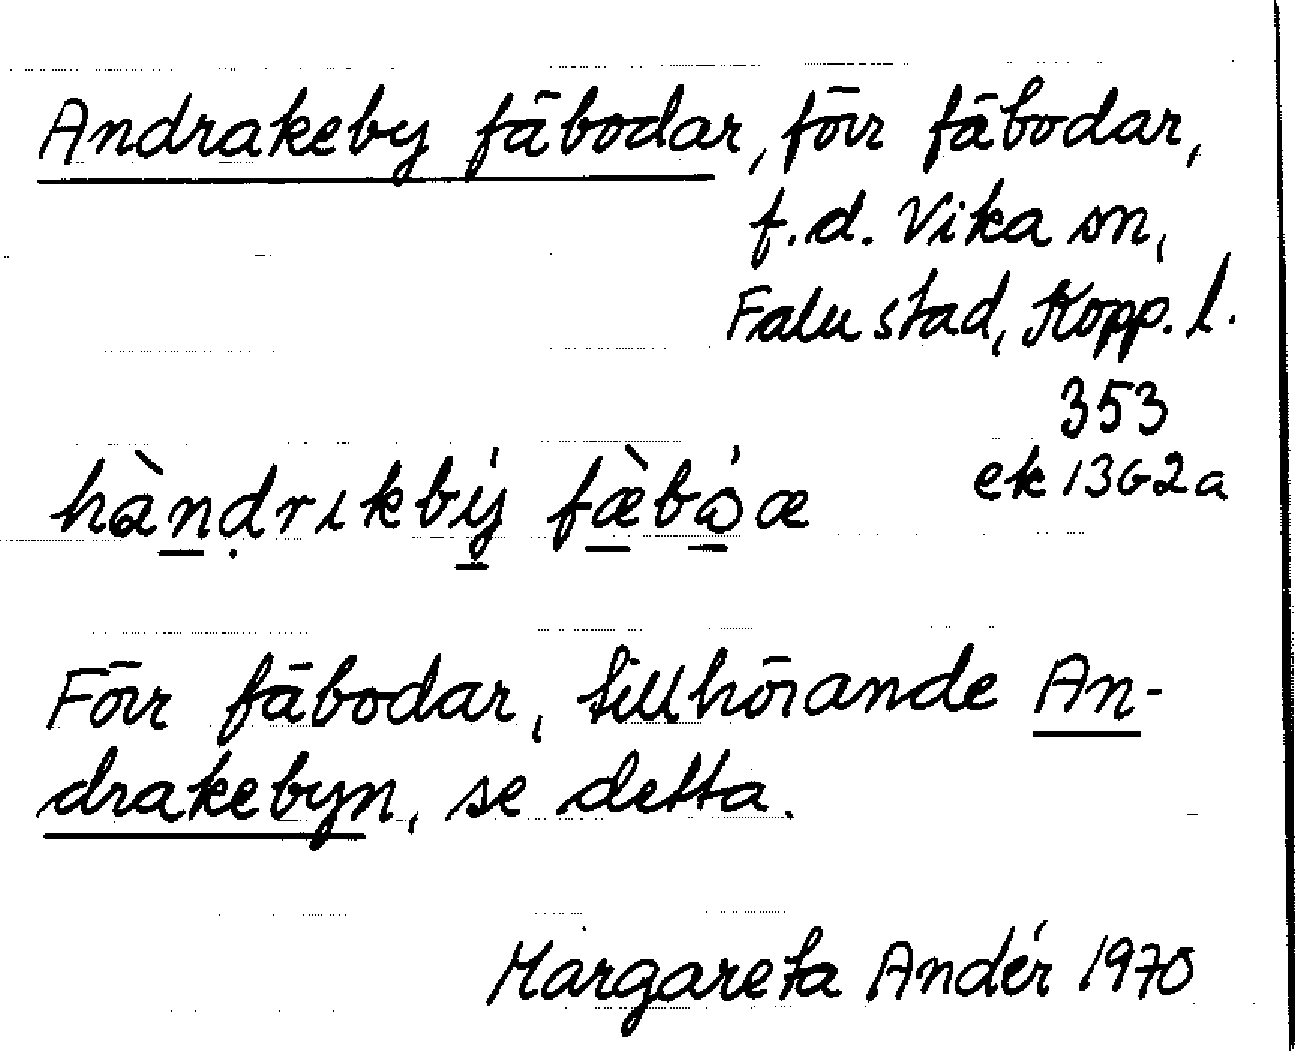 Andrakeby fäbodar, förr fäbodar,
f.d. Vika sn,
Falu stad, Kopp. l.
353
ek 13G2a
hàndrɩkbý fæ̀bɷ́æ
Förr fäbodar, tillhörande An-
drakebyn, se detta.
Margareta Andér 1970